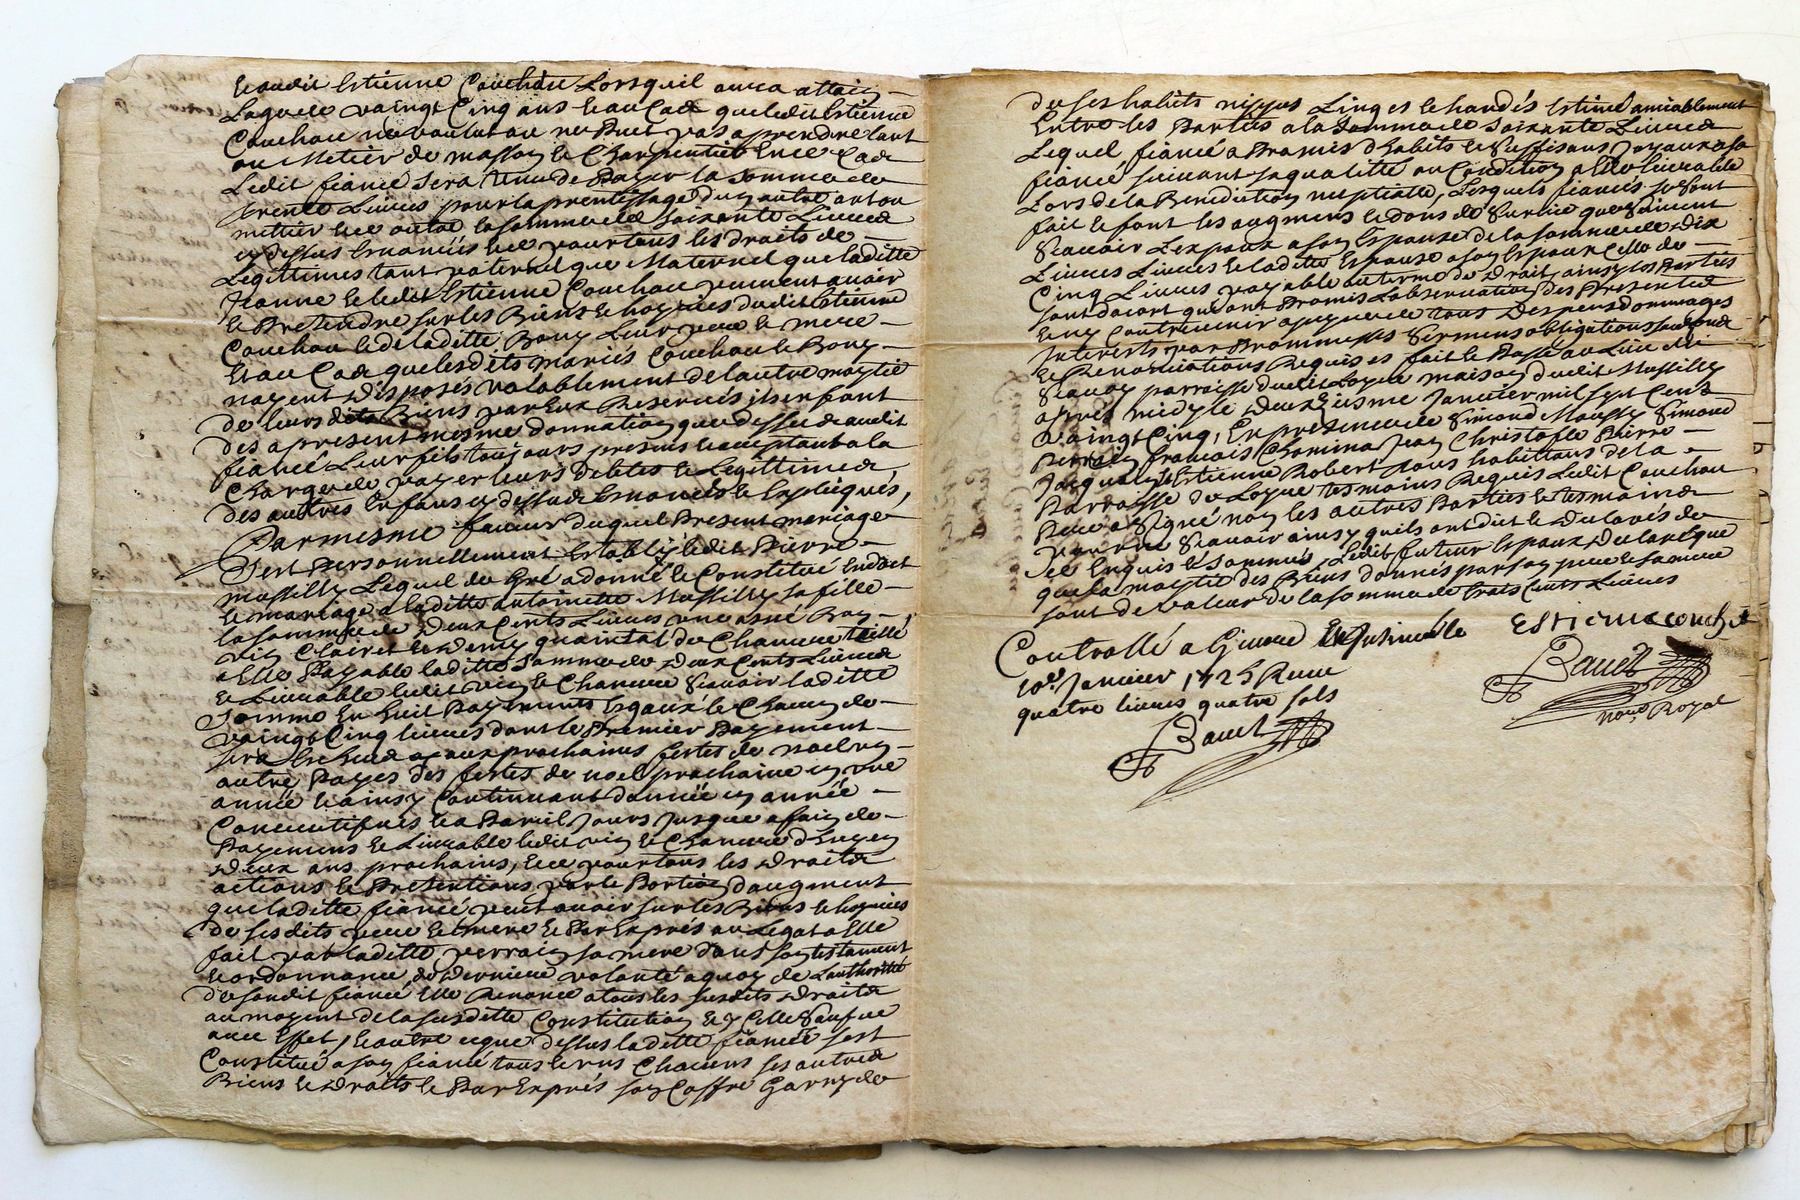 audit Estienne Couchou Lorsquil aura attain
Laage de vaingt Cinq ans et au Cas que ledit Estienne
Couchou ne voulut ou ne Put pas aprendre lart
ou Metier de masson et Charpentier En ce Cas
Ledit fiancé sera tenu de Payer la somme de
trente Livres pour laprentissage dun autre art ou
mettier et ce outre la somme de soixante Livres
cy dessus Enoncéés et ce pour tous les droits de
Legittimes tant paternel que Maternel que laditte
Jeanne et ledit Estienne Couchou peuvent avoir
et Pretendre sur les Biens et hoyries dudit Estienne
Couchou et de laditte Bouy Leur pere et mere
Et au Cas que lesdits mariés Couchou et Bouy
nayent disposés valablement de lautre moytié
de leurs dits Biens par Eux Reservés ils en font
des apresent mesme donnation que dessus audit
fiancé Leur fils toujours present et acceptant a la
Charge de payer leurs Debtes et Legittimes
des autres Enfans cy dessus Enoncés et Expliqués,
Par mesme faveur duquel Present mariage
sest Personnellement Establÿ ledit Pierre
Massilly Lequel de Gré a donné et Constitué Endot
et mariage a laditte antoinette Massilly sa fille
la somme de deux Cents Livres une asné
vin Clairet et demy quaintal de Chanvre
a Elle Payable laditte somme de deux Cents Livres
et Livrable ledit vin et Chanvre sçavoir laditte
somme En huit Payements Egaux et Chacun de
vaingt Cinq livres dont le Premier Payement
sera aux prochaines festes de noel en
autre Payes des festes de noel prochaine en une
année et ainsy Continuant dannéé en annéé
Consecutifves et a Pareil jours jusque a fain de
Payemens et Livrable ledit vin et Chanvre
deux ans prochains, et ce pour tous les droits
actions et Pretentions par le Portion daugment
que laditte fiancéé peut avoir sur les Biens et hoyries
de sesdits pere et mere et Par Exprés au Legat a Elle
fait par laditte perrain sa mere dans son testament
et ordonnance de derniere volonté a quoy de Lauthorité
de sondit fiancé Elle Renonce a tous les susdits droits
au moyent de la susditte Constitution
avec Effet, et outre ce que dessus laditte fiancéé sest
Constitué a son fiancé tous et uns Chacuns ses autres
Biens et droits et Par Exprés son Coffre Garny de
de ses habits nippes Linges et hardés Estimé amiablement
Entre les Parties a la somme de soixante Livres
Lequel fiancé a Promis dhabits et suffisans joyaux a sa
fiancé suivant sa qualitté ou Condition a Elle livrable
Lors de la Benediction nuptialle, Lesquels fiancés se sont
fait et font les augmens et dons de survie que suivent
Scavoir Lexpoux a son Espouse de la somme de dix
Livres Livres et laditte Espouse a son Espoux Celle de
Cinq Livres payable au terme de droit, ainsy les Parties
sont dacort quont Promis Lobservation des Presentes
et ny Contrevenir a peyne de tous Despens dommages
Interests par Prommesses sermens obligations
et Renontiations Requises fait et Passé au Lieu de
parroisse dudit Loyre maison dudit Massilly
apres midy le deuxziesme Janvier mil sept Cens
vaingt Cinq, En presence de Simond Moussy Simond
Perrein francois Chomina Jean Christofle Pierre
Jacqualy Estienne Robert tous habittans de la
Parroisse de Loyre tesmoins Requis Ledit Couchou
Pere a signé non les autres Parties et tesmoins
pour ne Scavoir ainsy quils ont dict et declarés de
ce Enquis et sommés, Ledit futeur Espoux declare que
que la moytié des Biens donnés par son pere et sa mere
sont de valeur de la somme de trois Cents Livres
Controllé a Givord Et Insinué le
10e. Janvier 1725 Receu
quatre livres quatre sols
Bauet
Estieneconchot
Bauet
nore. Royal